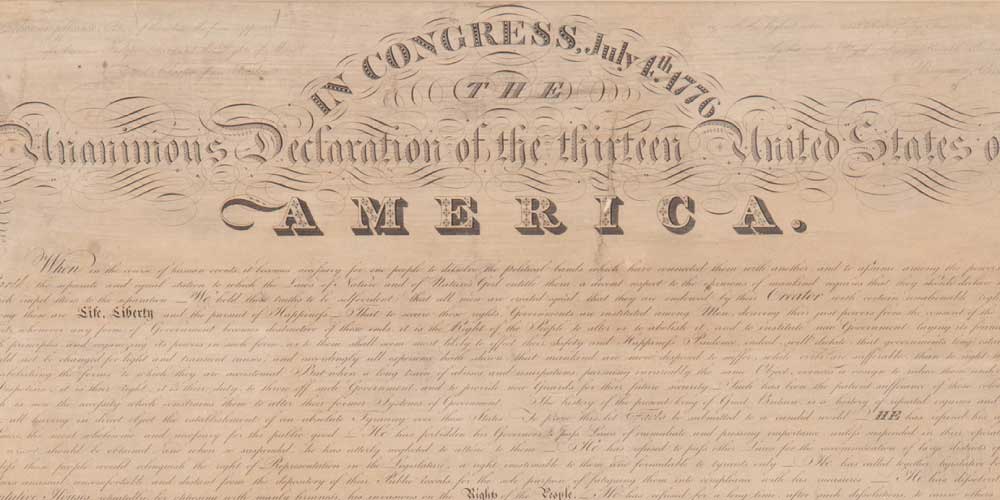 IN CONGRESS, July 4th. 1776
THE
Unanimous Declaration of the thirteen United States o
AMERICA.
When in the course of human events it becomes necessary for one people to dissolve the political bands which have connected them with another and to assume among the powers
the separate and equal station to which the Laws of Nature and of Nature's God entitle them a decent respect to the opinions of mankind requires that they should declare
which impel them to the separation — We hold these truths to be selfevident that all men are created equal that they are endowed by their Creator with certain unalienable Rights
these are Life, Liberty and the pursuit of Happiness — That to secure these rights, Governments are instituted among Men deriving their just powers from the consent of the
it is the Right of the People to alter or to abolish it, and to institute new Government laying its foundation
principles and organizing its powers in such form as to them shall seem most likely to effect their Safety and Happiness Prudence indeed will dictate that governments long established
should not be changed for light and transient causes and accordingly all experience hath shewn that mankind are more disposed to suffer while evils are sufferable than to right
abolishing the forms to which they are accustomed But when a long train of abuses and usurpations pursuing invariably the same Object, evinces a design to reduce them under
Despotism it is their right, it is their duty to throw off such Government and to provide new Guards for their future security — Such has been the patient sufferance of these
is now the necessity which constrains them to alter their former Systems of Government The history of the present king of Great Britain is a history of repeated injuries and
all having in direct object the establishment of an absolute Tyranny over these States To prove this let Facts be submitted to a candid world HE has refused his
the most wholesome and necessary for the public good — He has forbidden his Governors to pass Laws of immediate and pressing importance unless suspended in their operation
should be obtained and when so suspended he has utterly neglected to attend to them — He has refused to pass other Laws for the accommodation of large districts of
unless those people would relinquish the right of Representation in the Legislature, a right inestimable to them and formidable to tyrants only — He has called together legislative
unusual uncomfortable and distant from the depository of their Public Records for the sole purpose of fatiguing them into compliance with his measures — He has
Houses repeatedly for opposing with manly firmness his invasions on the Rights of the People. — He has refused for a long time after such